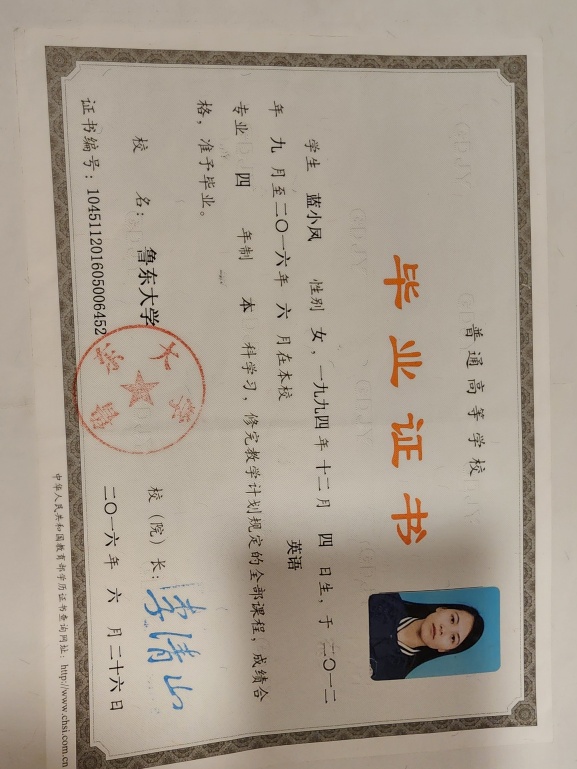 普通高等学校
毕业证书
学生 蓝小凤 性别 女，一九九四年 十二月 四 日生，于二〇一二
年 九 月至二〇一六年 六 月在本校 英语
专业 四 年制 本 科学习，修完教学计划规定的全部课程，成绩合
格，准予毕业。
校 名：鲁东大学 校（院）长：李清山
证书编号：104511201605006452 二〇一六年 六 月二十六日
中华人民共和国教育部学历证书查询网址：http://www.chsi.com.cn